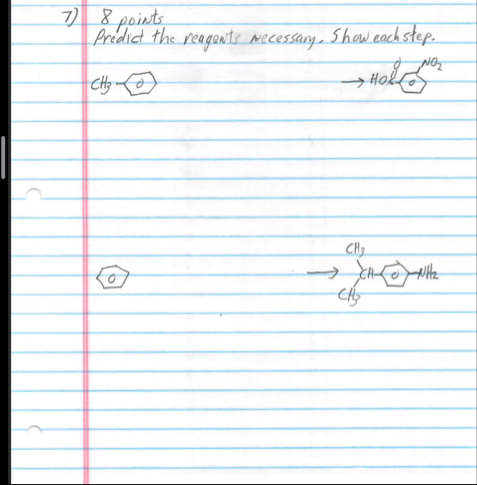 7) 8 points
Predict the reagents necessary. Show each step.
CH3 → HO O NO2
→ CH3 CH NH2
CH3